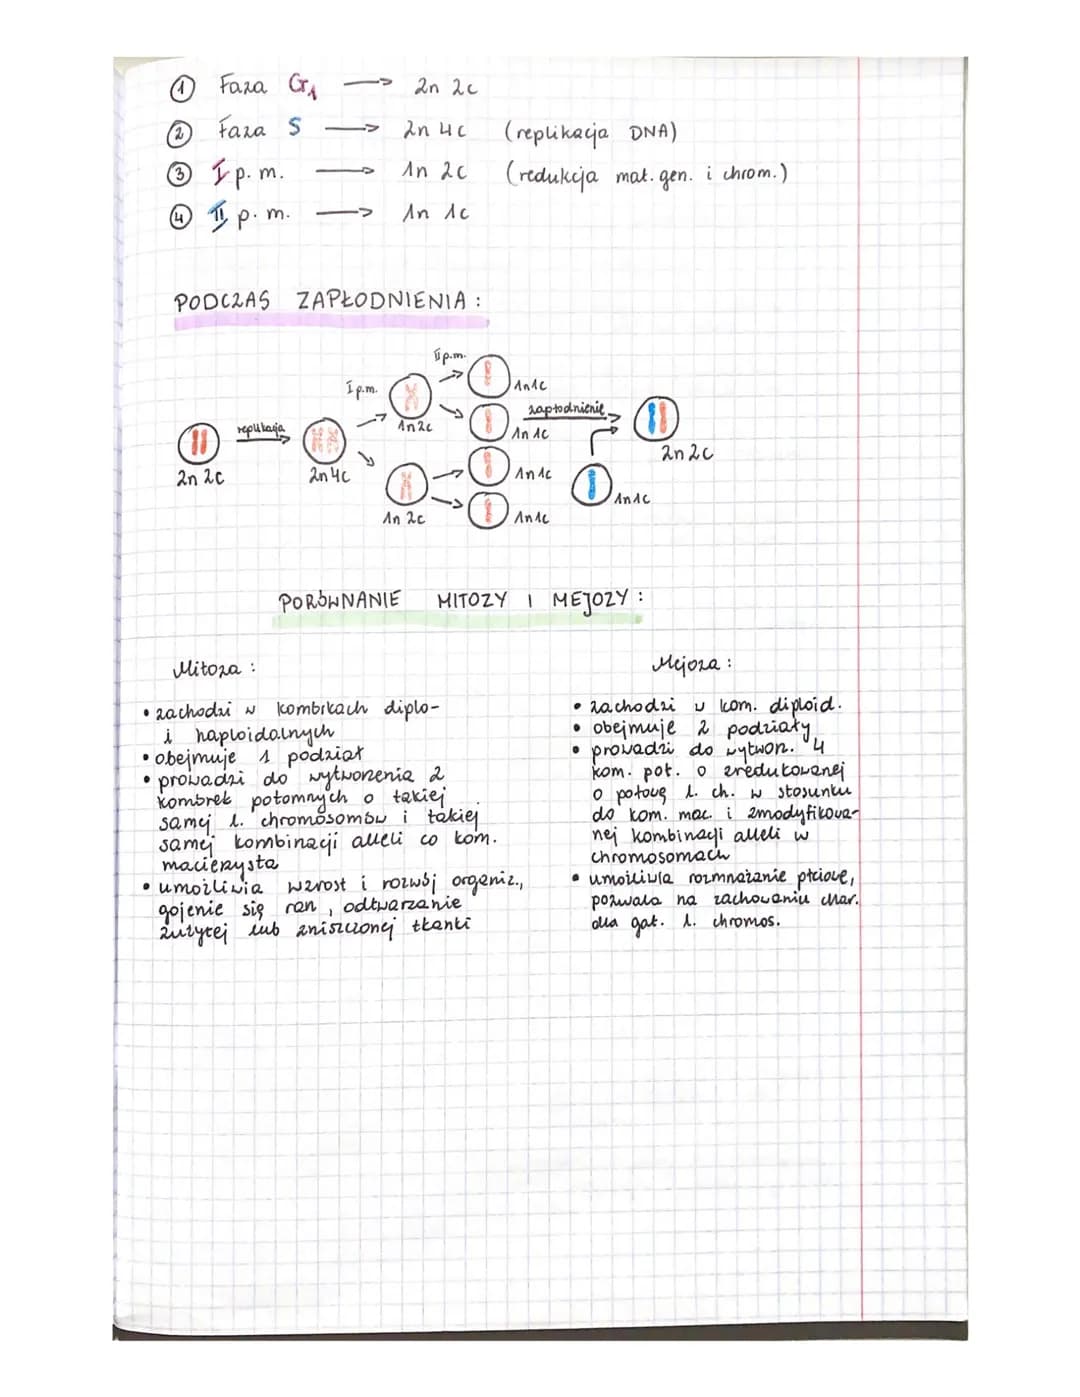 1 Faza G1 → 2n 2c
2 Faza S → 2n 4c (replikacja DNA)
3 I p.m. → 1n 2c (redukcja mat. gen. i chrom.)
4 II p.m. → 1n 1c
PODCZAS ZAPŁODNIENIA :
II p.m.
I p.m.
1n1c
replikacja
1n2c
zapłodnienie
1n 1c
2n 2c
2n 2c
2n 4c
1n1c
1n1c
1n 2c
1n1c
PORÓWNANIE MITOZY I MEJOZY :
Mitoza :
• zachodzi w komórkach diplo-
i haploidalnych
• obejmuje 1 podział
• prowadzi do wytworzenia 2
komórek potomnych o takiej
samej l. chromosomów i takiej
samej kombinacji alleli co kom.
macierzysta
• umożliwia wzrost i rozwój organiz.,
gojenie się ran, odtwarzanie
zużytej lub zniszczonej tkanki
Mejoza :
• zachodzi w kom. diploid.
• obejmuje 2 podziały
• prowadzi do wytworz. 4
kom. pot. o zredukowanej
o połowę l. ch. w stosunku
do kom. mac. i zmodyfikowa-
nej kombinacji alleli w
chromosomach
• umożliwia rozmnażanie płciowe,
pozwala na zachowaniu char.
dla gat. l. chromos.